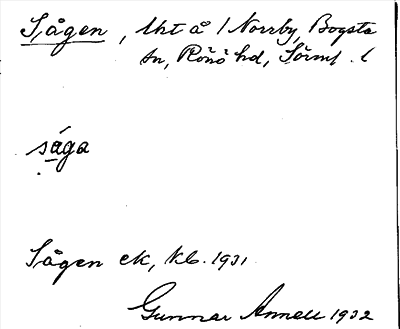 Sågen, tht å / Norrby, Bogsta
sn, Rönö hd, Sörml. l
såga
Sågen ek, kb. 1931
Gunnar Annell 1932